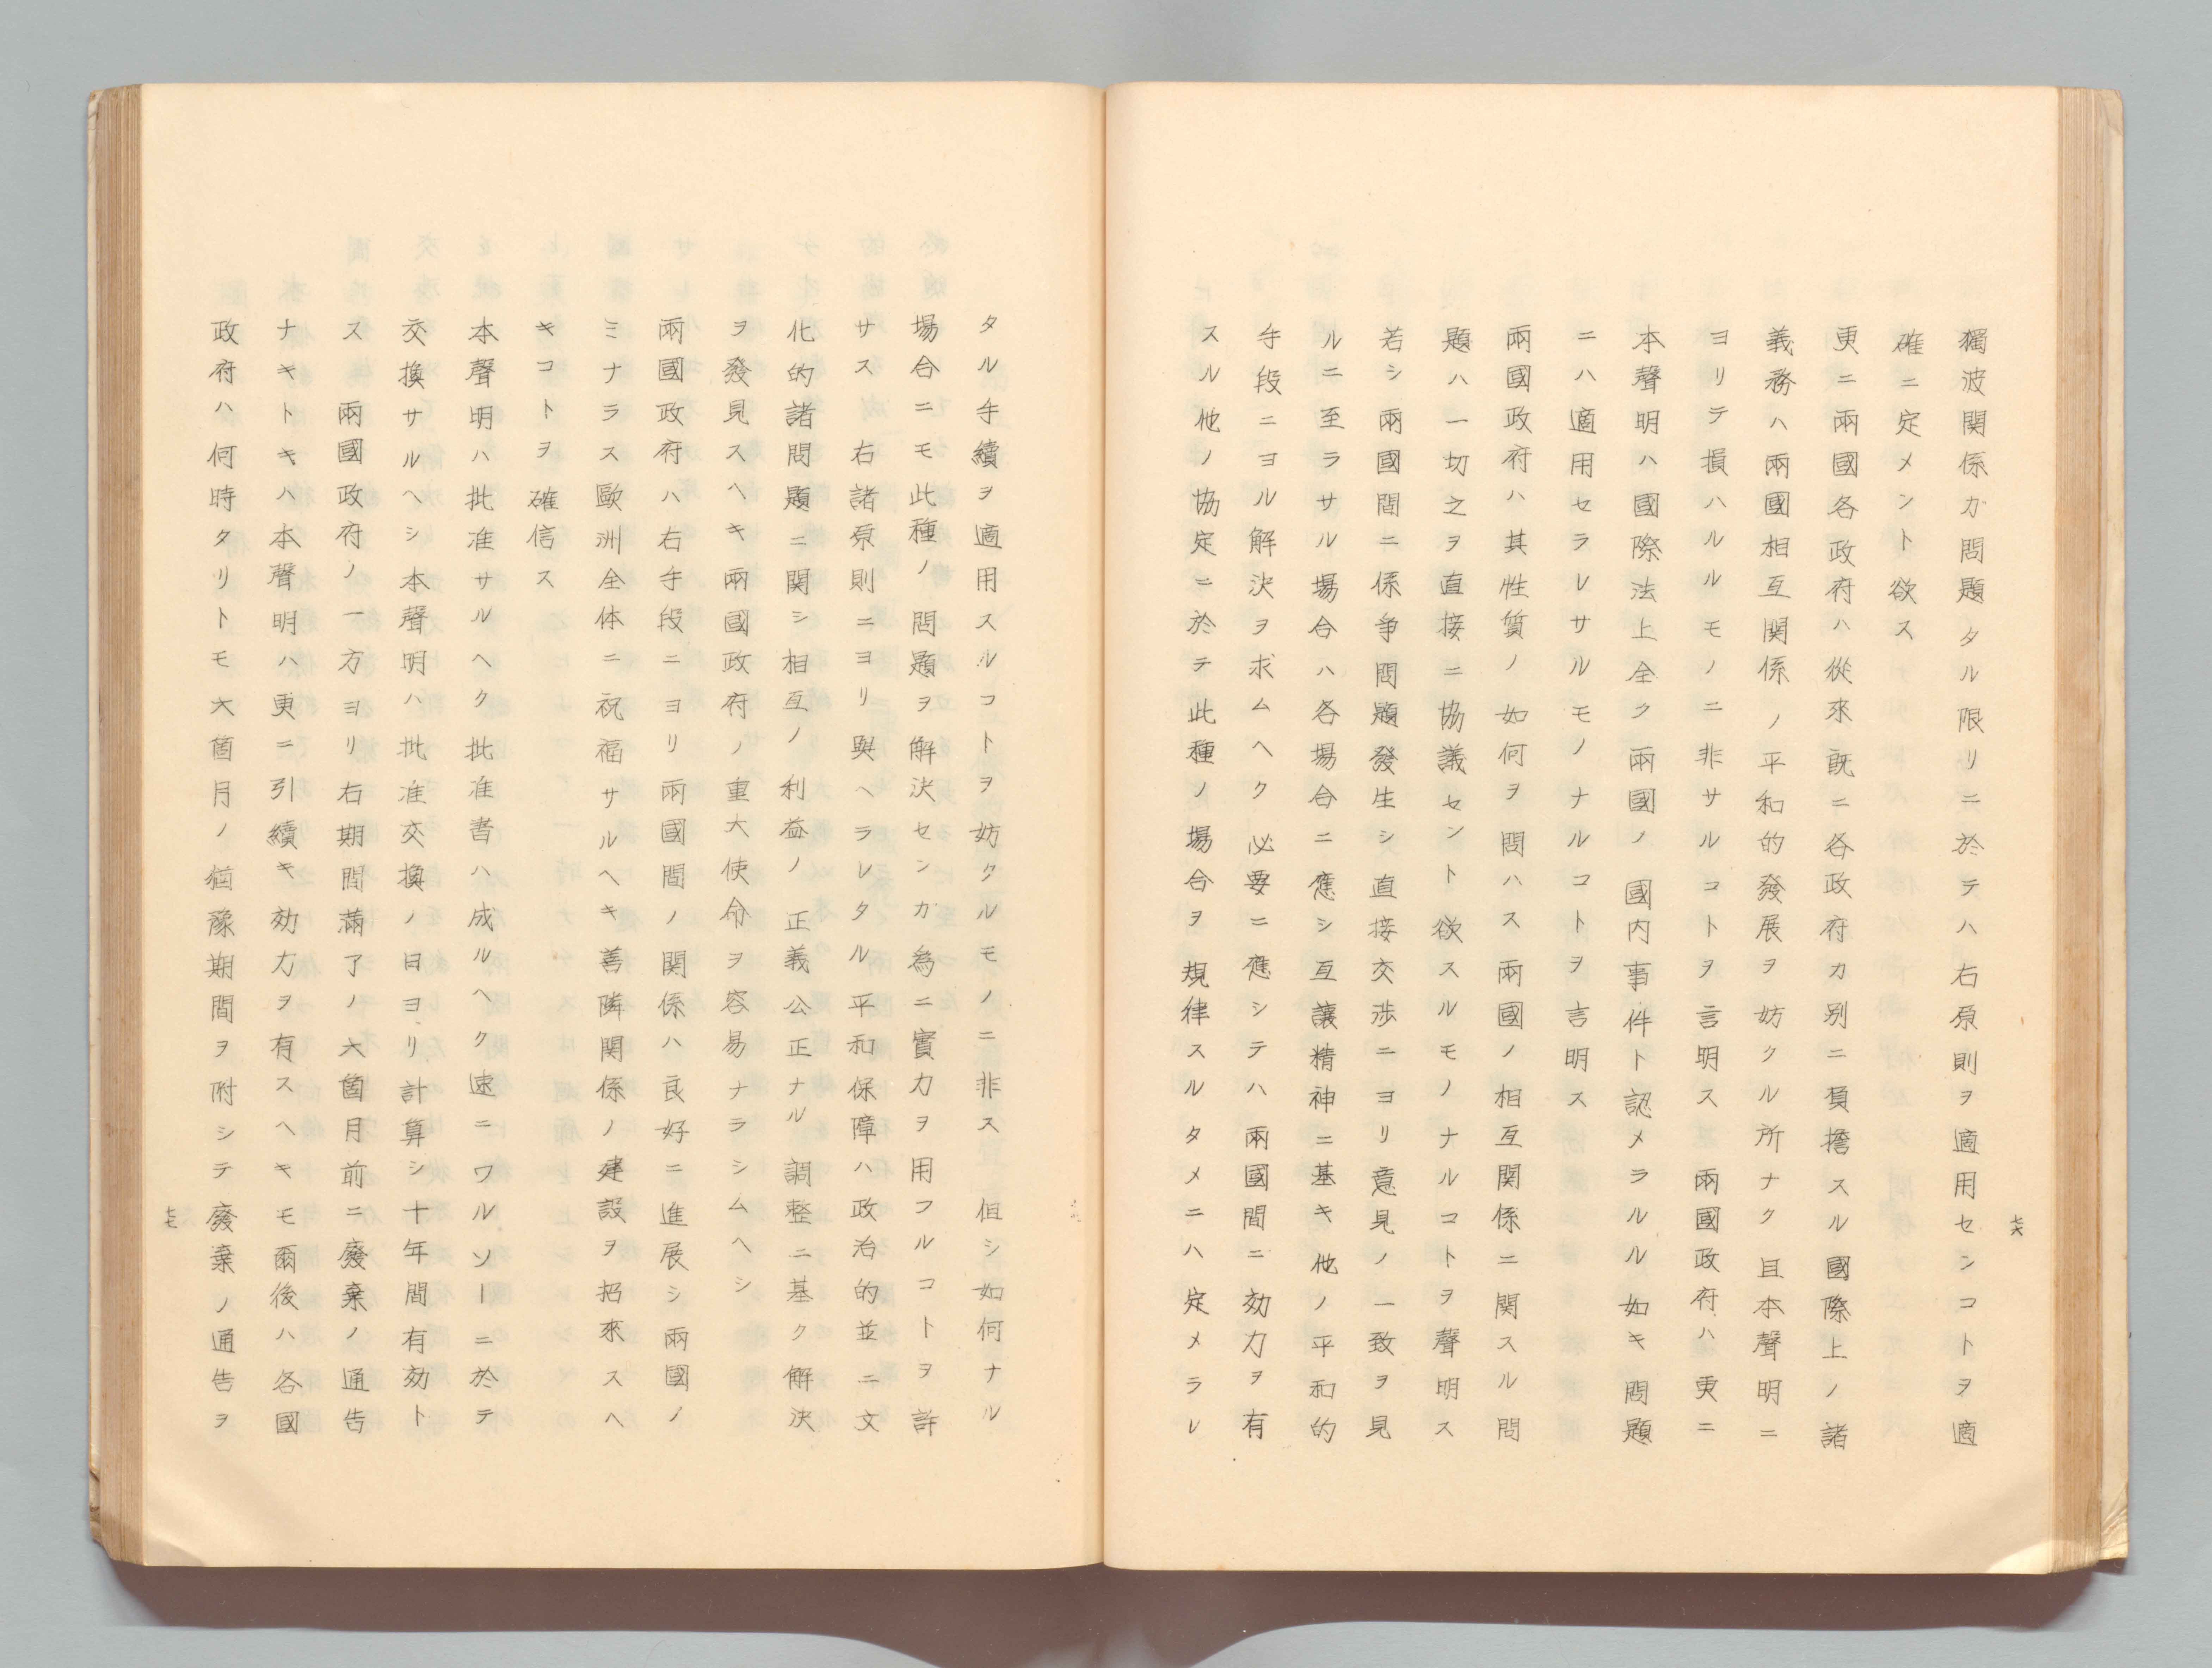 七六
獨波関係カ問題タル限リニ於テハ右原則ヲ適用センコトヲ適
確ニ定メント欲ス
更ニ兩國各政府ハ從來既ニ各政府カ別ニ負擔スル國際上ノ諸
義務ハ兩國相互関係ノ平和的發展ヲ妨クル所ナク且本聲明ニ
ヨリテ損ハルルモノニ非サルコトヲ言明ス兩國政府ハ更ニ
本聲明ハ國際法上全ク兩國ノ國内事件ト認メラルル如キ問題
ニハ適用セラレサルモノナルコトヲ言明ス
兩國政府ハ其性質ノ如何ヲ問ハス兩國ノ相互関係ニ関スル問
題ハ一切之ヲ直接ニ協議セント欲スルモノナルコトヲ聲明ス
若シ兩國間ニ係争問題發生シ直接交渉ニヨリ意見ノ一致ヲ見
ルニ至ラサル場合ハ各場合ニ應シ互讓精神ニ基キ他ノ平和的
手段ニヨル解決ヲ求ムヘク必要ニ應シテハ兩國間ニ効力ヲ有
スル他ノ協定ニ於テ此種ノ場合ヲ規律スルタメニハ定メラレ
タル手續ヲ適用スルコトヲ妨クルモノニ非ス 但シ如何ナル
場合ニモ此種ノ問題ヲ解決センカ為ニ實力ヲ用フルコトヲ許
サス 右諸原則ニヨリ與ヘラレタル平和保障ハ政治的並ニ文
化的諸問題ニ関シ相互ノ利益ノ正義公正ナル調整ニ基ク解決
ヲ發見スヘキ兩國政府ノ重大使命ヲ容易ナラシムヘシ
兩國政府ハ右手段ニヨリ兩國間ノ関係ハ良好ニ進展シ兩國ノ
ミナラス歐洲全体ニ祝福サルヘキ善隣関係ノ建設ヲ招來スヘ
キコトヲ確信ス
本聲明ハ批准サルヘク批准書ハ成ルヘク速ニワルソーニ於テ
交換サルヘシ本聲明ハ批准交換ノ日ヨリ計算シ十年間有効ト
ス 兩國政府ノ一方ヨリ右期間滿了ノ六箇月前ニ廢棄ノ通告
ナキトキハ本聲明ハ更ニ引續キ効力ヲ有スヘキモ爾後ハ各國
政府ハ何時タリトモ六箇月ノ猶豫期間ヲ附シテ廢棄ノ通告ヲ
七七